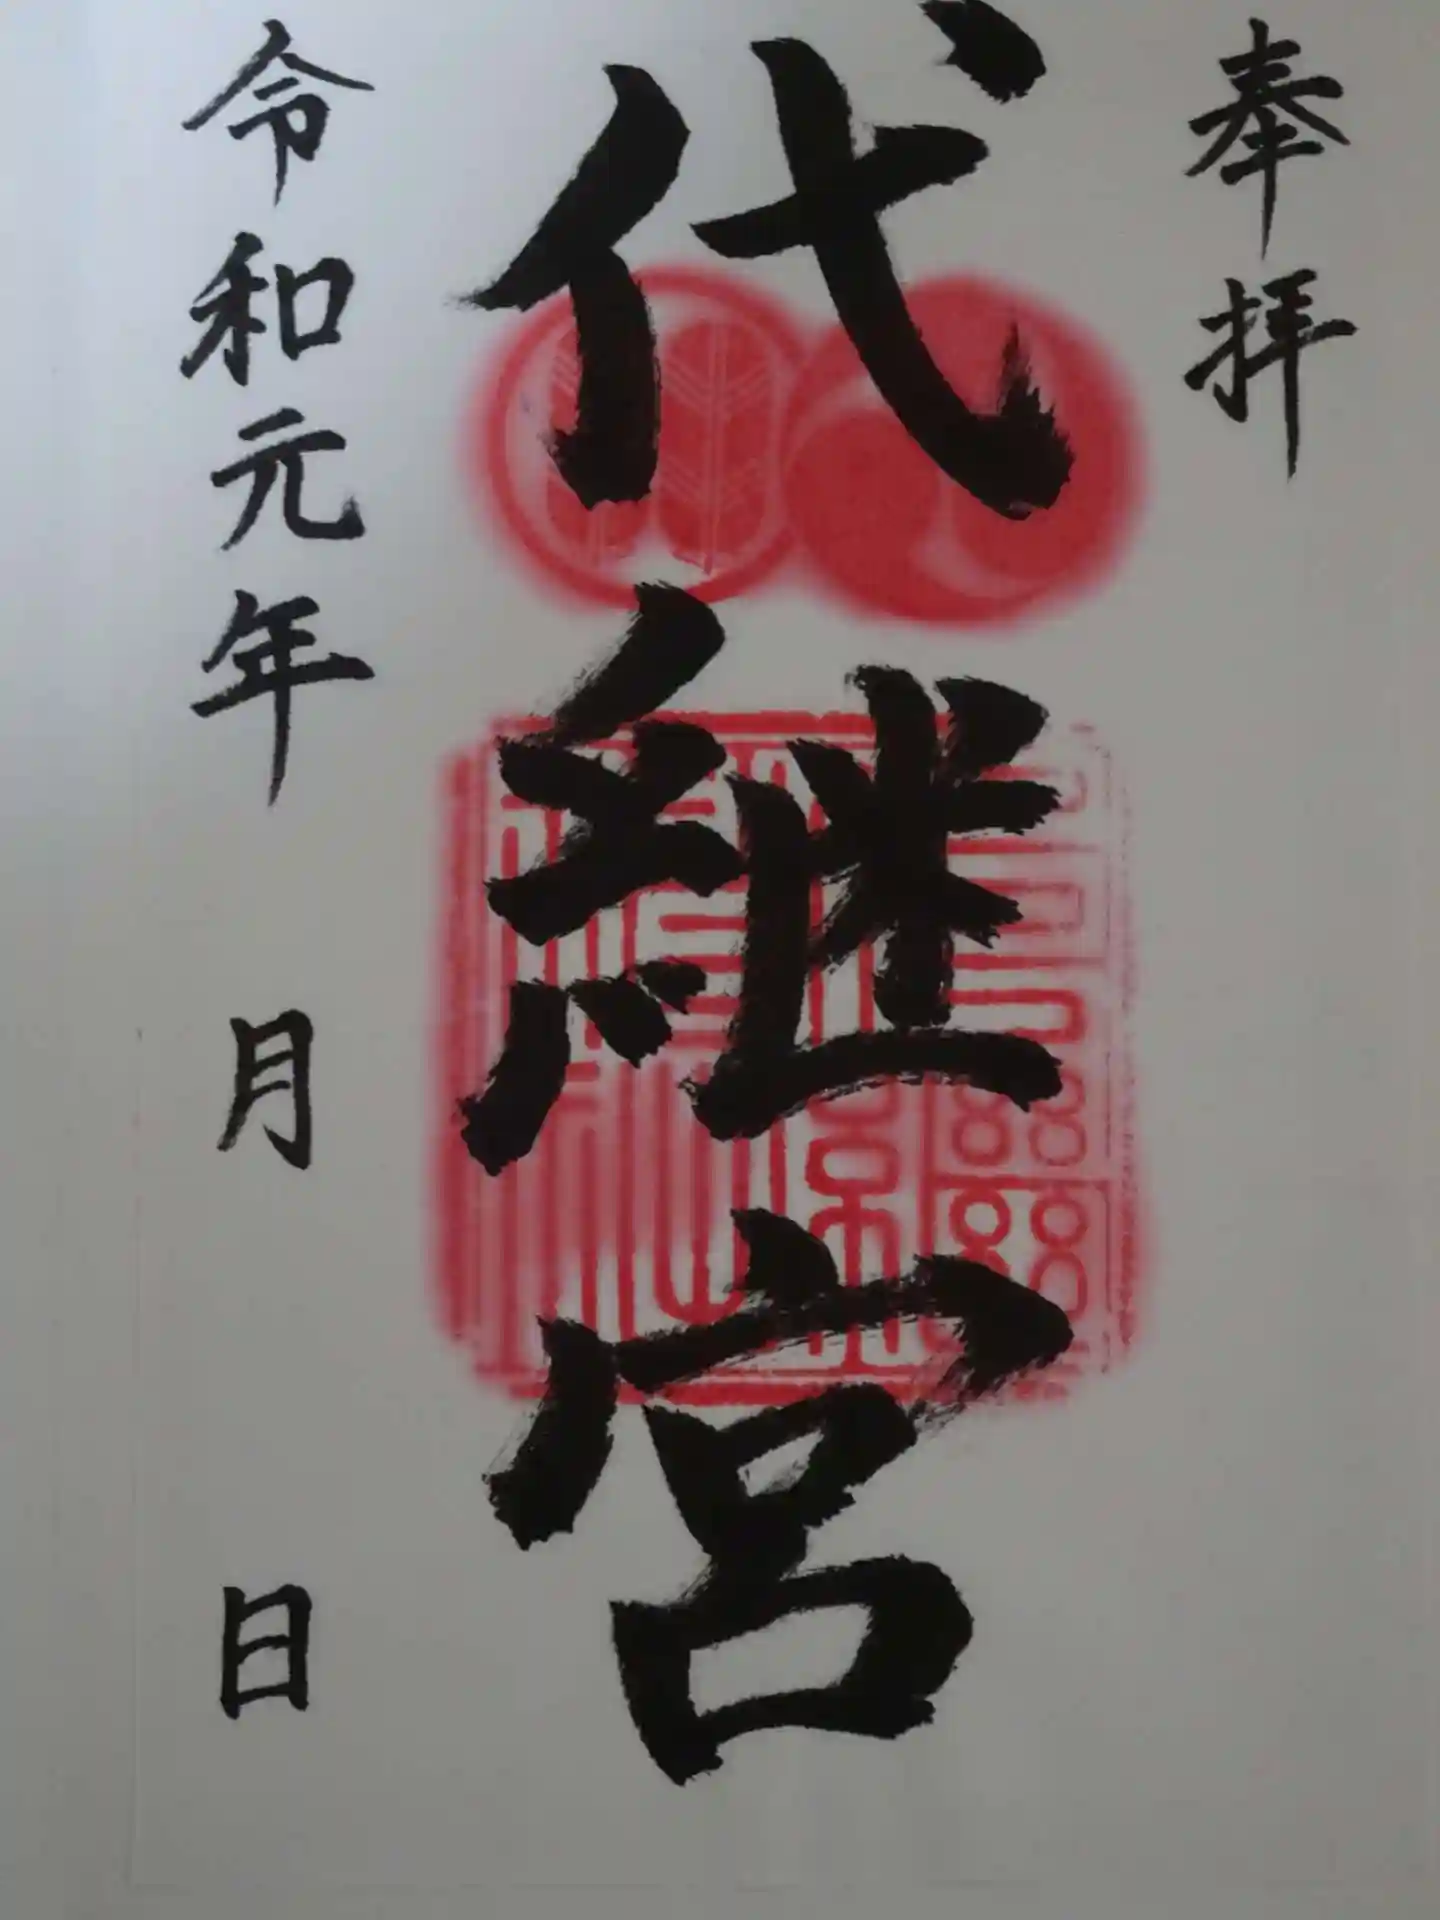 奉拝
代継宮
令和元年 月 日